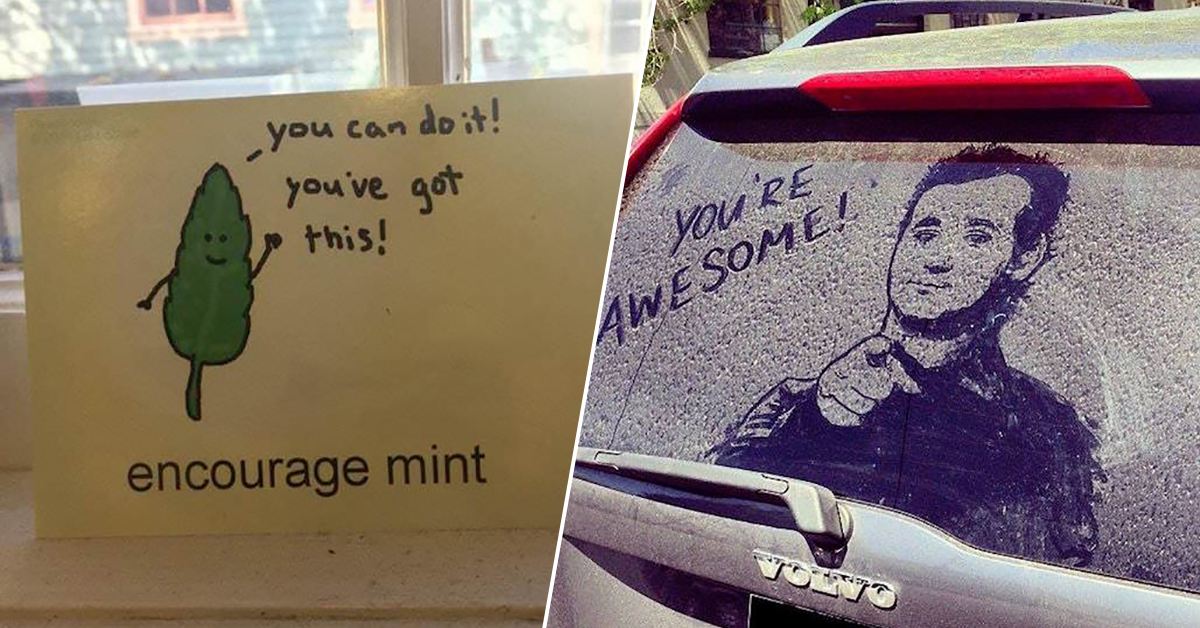 you can do it!
you've got
this!
encourage mint
YOU'RE
AWESOME!
VOLVO